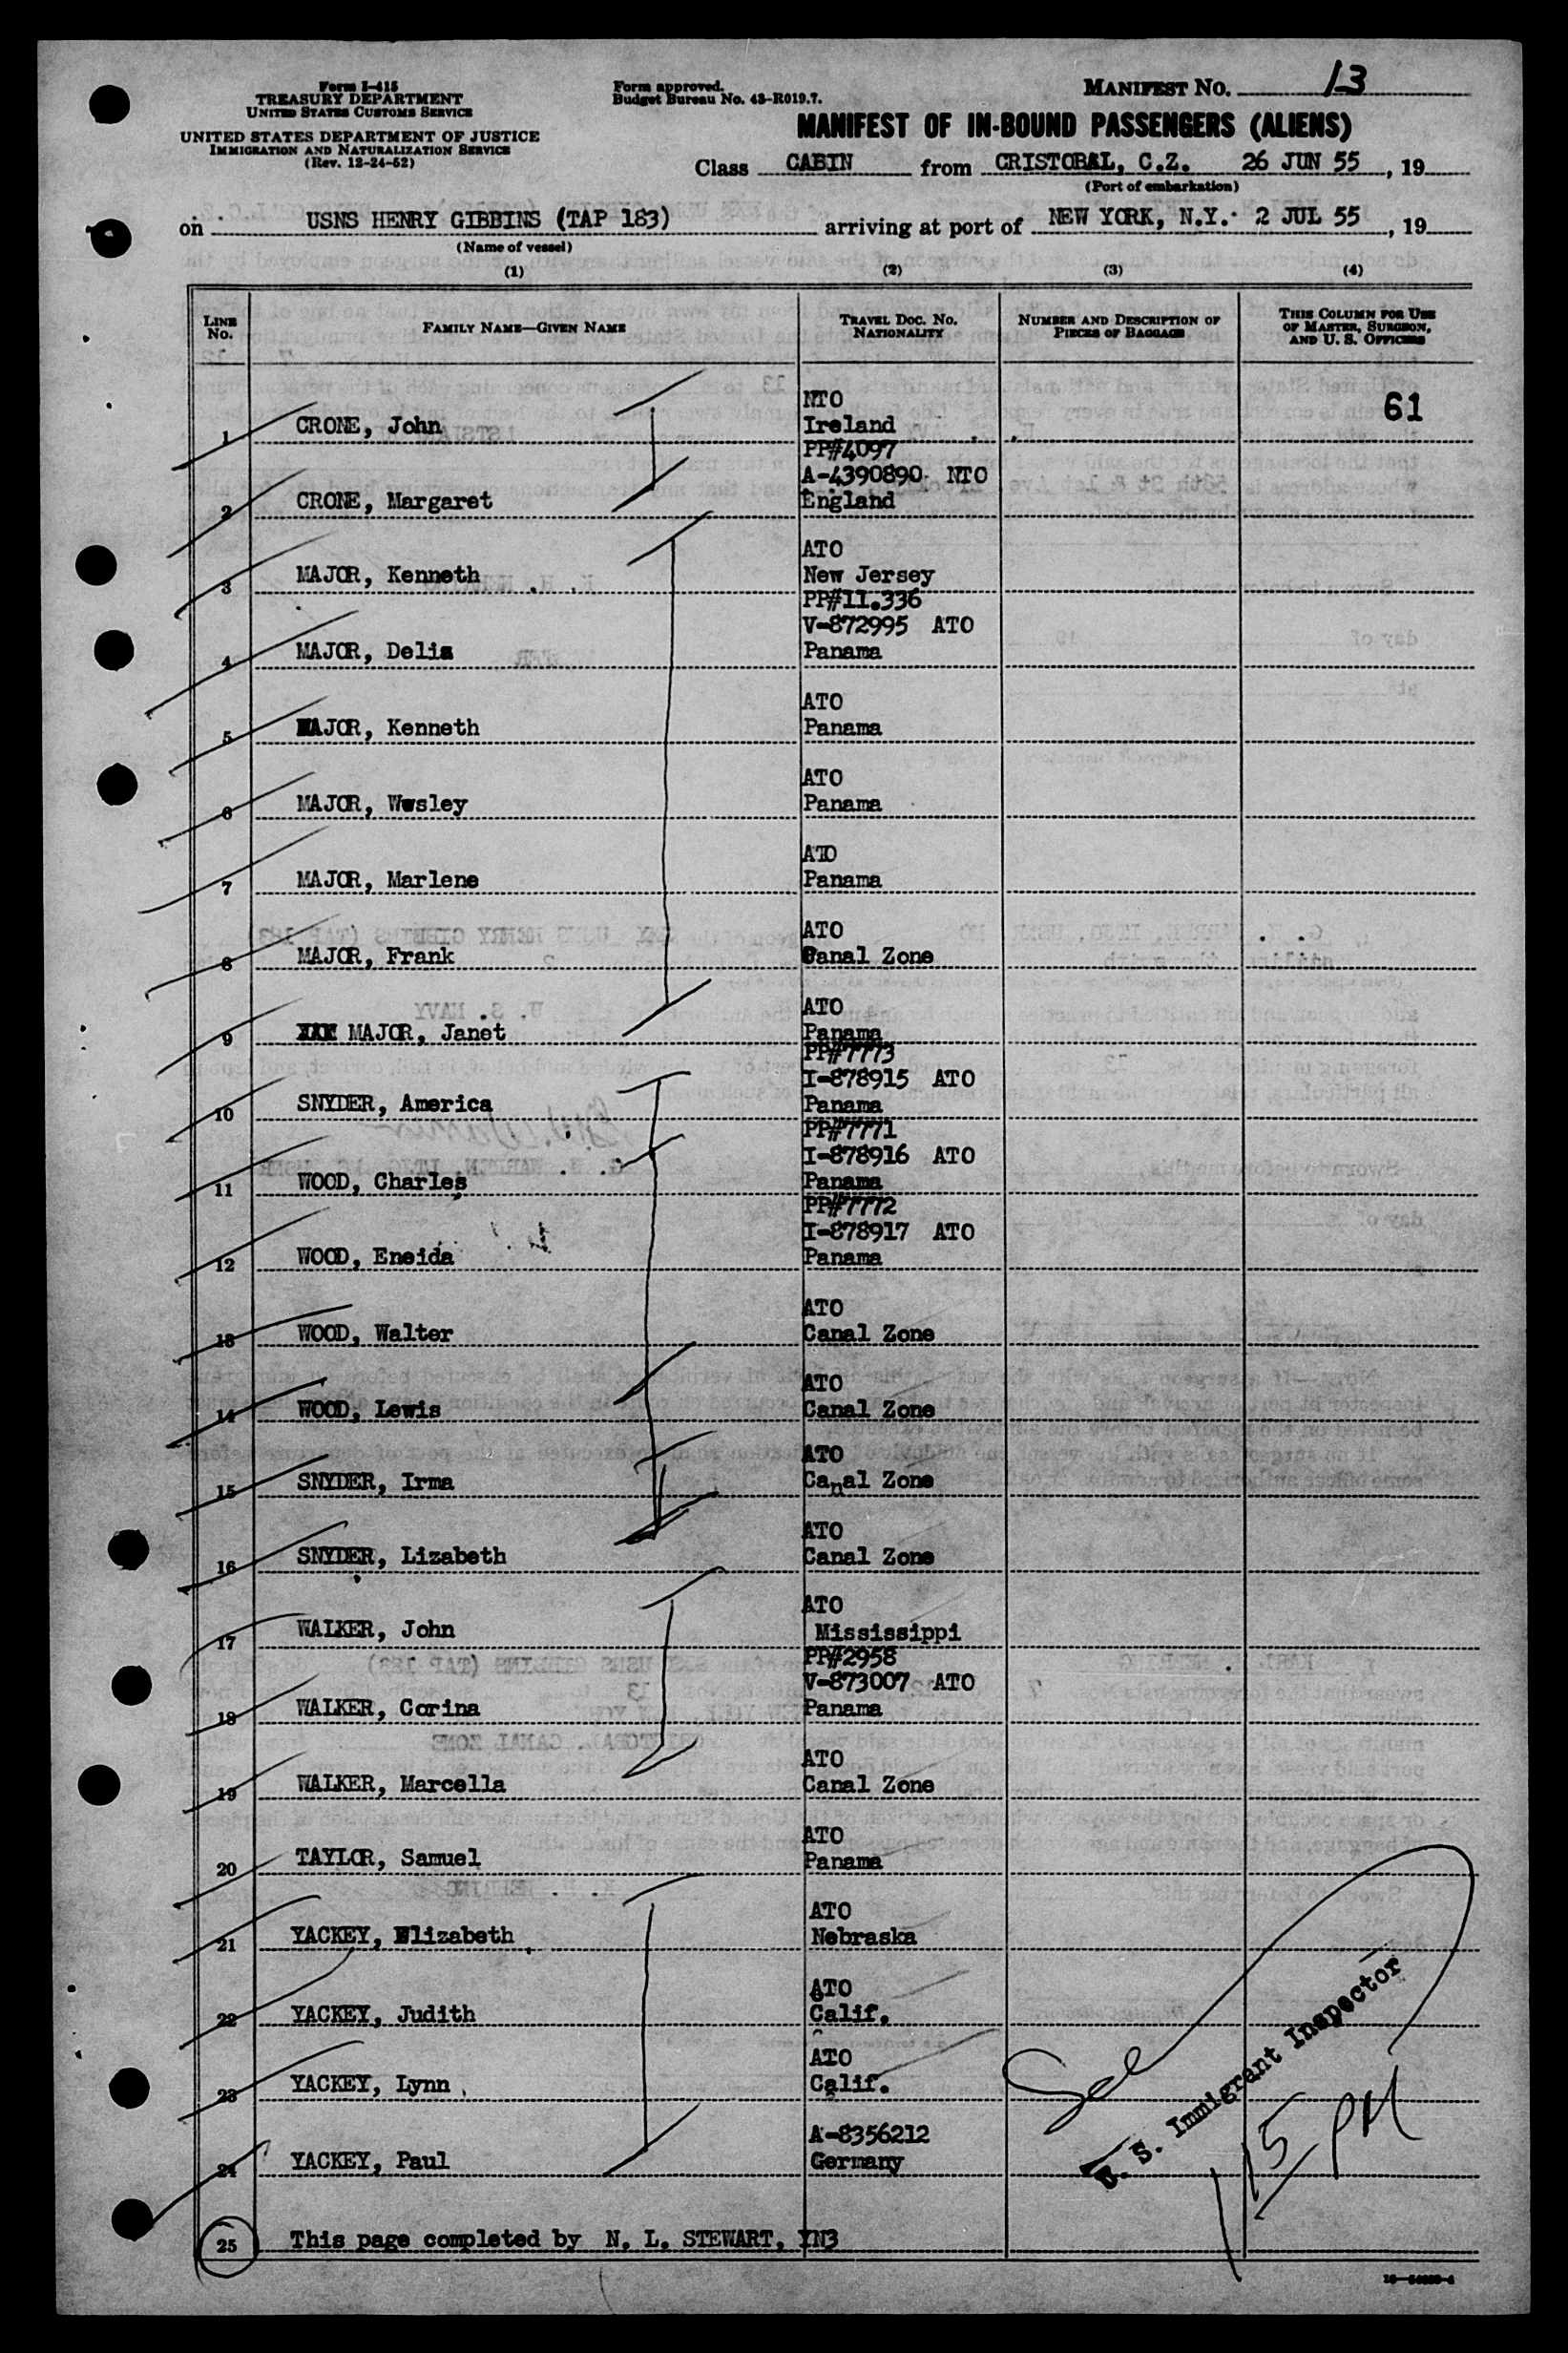 Form I-415
TREASURY DEPARTMENT
UNITED STATES CUSTOMS SERVICE
UNITED STATES DEPARTMENT OF JUSTICE
IMMIGRATION AND NATURALIZATION SERVICE
(Rev. 12-24-52)
Form approved.
Budget Bureau No. 43-R019.7.
MANIFEST NO. 13
MANIFEST OF IN-BOUND PASSENGERS (ALIENS)
Class CABIN from CRISTOBAL, C.Z. 26 JUN 55, 19
(Port of embarkation)
on USNS HENRY GIBBINS (TAP 183) arriving at port of NEW YORK, N.Y. 2 JUL 55, 19
(Name of vessel)
(1) (2) (3) (4)
LINE No. FAMILY NAME—GIVEN NAME TRAVEL DOC. NO. NATIONALITY NUMBER AND DESCRIPTION OF PIECES OF BAGGAGE THIS COLUMN FOR USE OF MASTER, SURGEON, AND U. S. OFFICERS
61
NTO
1 CRONE, John Ireland
PP#4097
A-4390890 NTO
2 CRONE, Margaret England
ATO
3 MAJOR, Kenneth New Jersey
PP#11.336
V-872995 ATO
4 MAJOR, Delia Panama
ATO
5 MAJOR, Kenneth Panama
ATO
6 MAJOR, Wesley Panama
ATO
7 MAJOR, Marlene Panama
ATO
8 MAJOR, Frank Canal Zone
ATO
9 MAJOR, Janet Panama
PP#7773
I-878915 ATO
10 SNYDER, America Panama
PP#7771
I-878916 ATO
11 WOOD, Charles Panama
PP#7772
I-878917 ATO
12 WOOD, Eneida Panama
ATO
13 WOOD, Walter Canal Zone
ATO
14 WOOD, Lewis Canal Zone
ATO
15 SNYDER, Irma Canal Zone
ATO
16 SNYDER, Lizabeth Canal Zone
ATO
17 WALKER, John Mississippi
PP#2958
V-873007 ATO
18 WALKER, Corina Panama
ATO
19 WALKER, Marcella Canal Zone
ATO
20 TAYLOR, Samuel Panama
ATO
21 YACKEY, Elizabeth Nebraska
ATO
22 YACKEY, Judith Calif.
ATO
23 YACKEY, Lynn Calif.
A-8356212
24 YACKEY, Paul Germany
U. S. Immigrant Inspector
115 PM
25 This page completed by N. L. STEWART, YN3